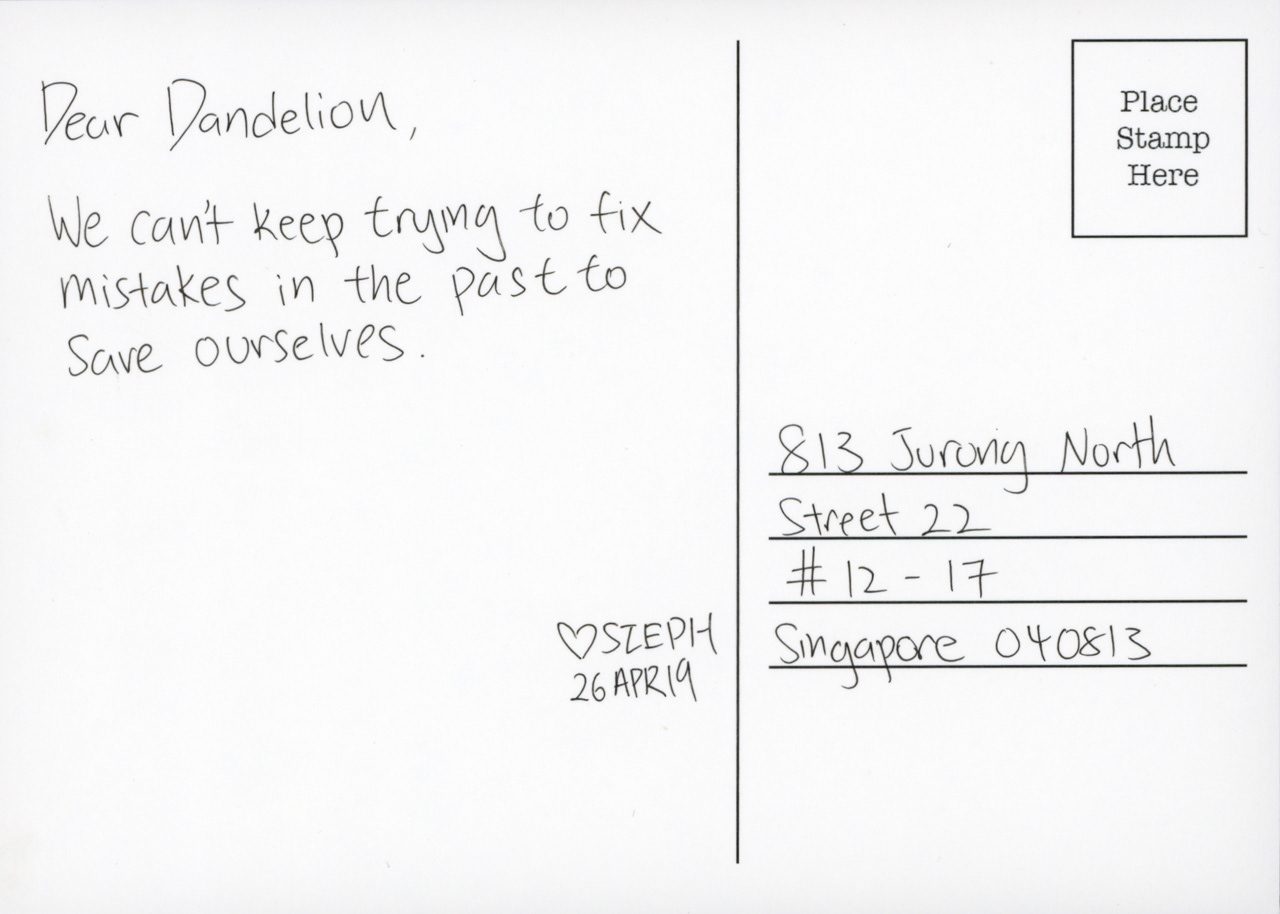 Dear Dandelion,
We can't keep trying to fix
mistakes in the past to
save ourselves.
♡STEPH
26 APR 19
Place
Stamp
Here
813 Jurong North
Street 22
# 12 - 17
Singapore 040813